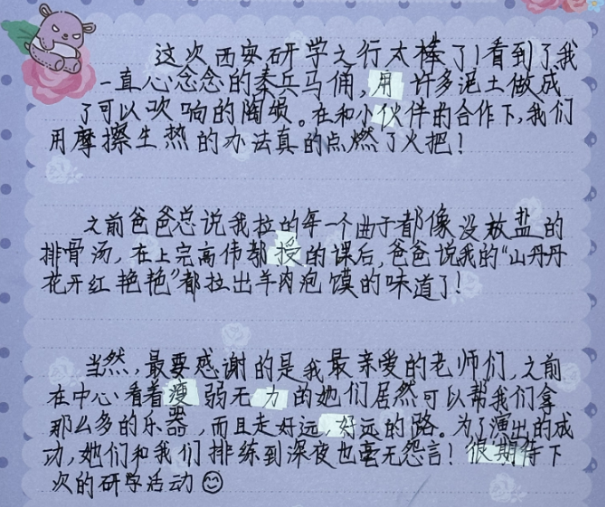 这次西安研学之行太棒了!看到了我
一直心心念念的秦兵马俑,用许多泥土做成
了可以吹响的陶埙。在和小伙伴的合作下,我们
用摩擦生热的办法真的点燃了火把!
之前爸爸总说我拉的每一个曲子都像没放盐的
排骨汤,在上完高伟都授的课后,爸爸说我的“山丹丹
花开红艳艳”都拉出羊肉泡馍的味道了!
当然,最要感谢的是我最亲爱的老师们,之前
在中心看着瘦弱无力的她们居然可以帮我们拿
那么多的乐器,而且走好远好远的路。为了演出的成
功,她们和我们排练到深夜也毫无怨言!很期待下
次的研学活动